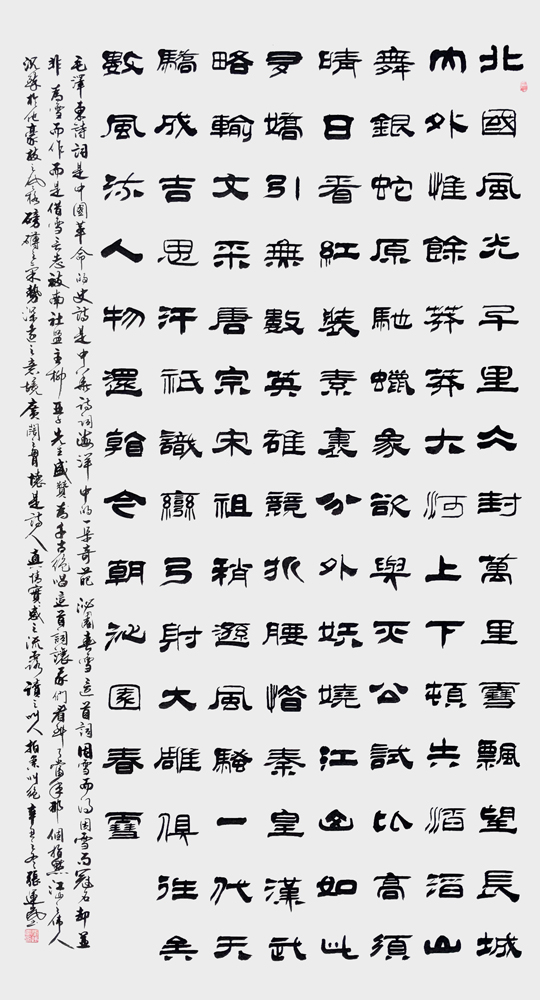 北國風光千里冰封萬里雪飄望長城
內外惟餘莽莽大河上下頓失滔滔山
舞銀蛇原馳蠟象欲與天公試比高須
晴日看紅裝素裹分外妖嬈江山如此
多嬌引無數英雄競折腰惜秦皇漢武
略輸文采唐宗宋祖稍遜風騷一代天
驕成吉思汗祇識彎弓射大雕俱往矣
數風流人物還看今朝沁園春雪
毛澤東詩詞是中國革命的史詩是中華詩詞海洋中的一朵奇葩沁園春雪這首詞因雪而得因雪而冠名却並
非為雪而作而是借雪言志被南社盟主柳亞子先生盛贊為千古絕唱這首詞讓我們看到了當年那個指點江山之偉人
沉醉於他豪放之風格磅礴之氣勢深遠之意境廣闊之胸懷是詩人真情實感之流露讀之叫人拍案叫絕辛丑之冬張連